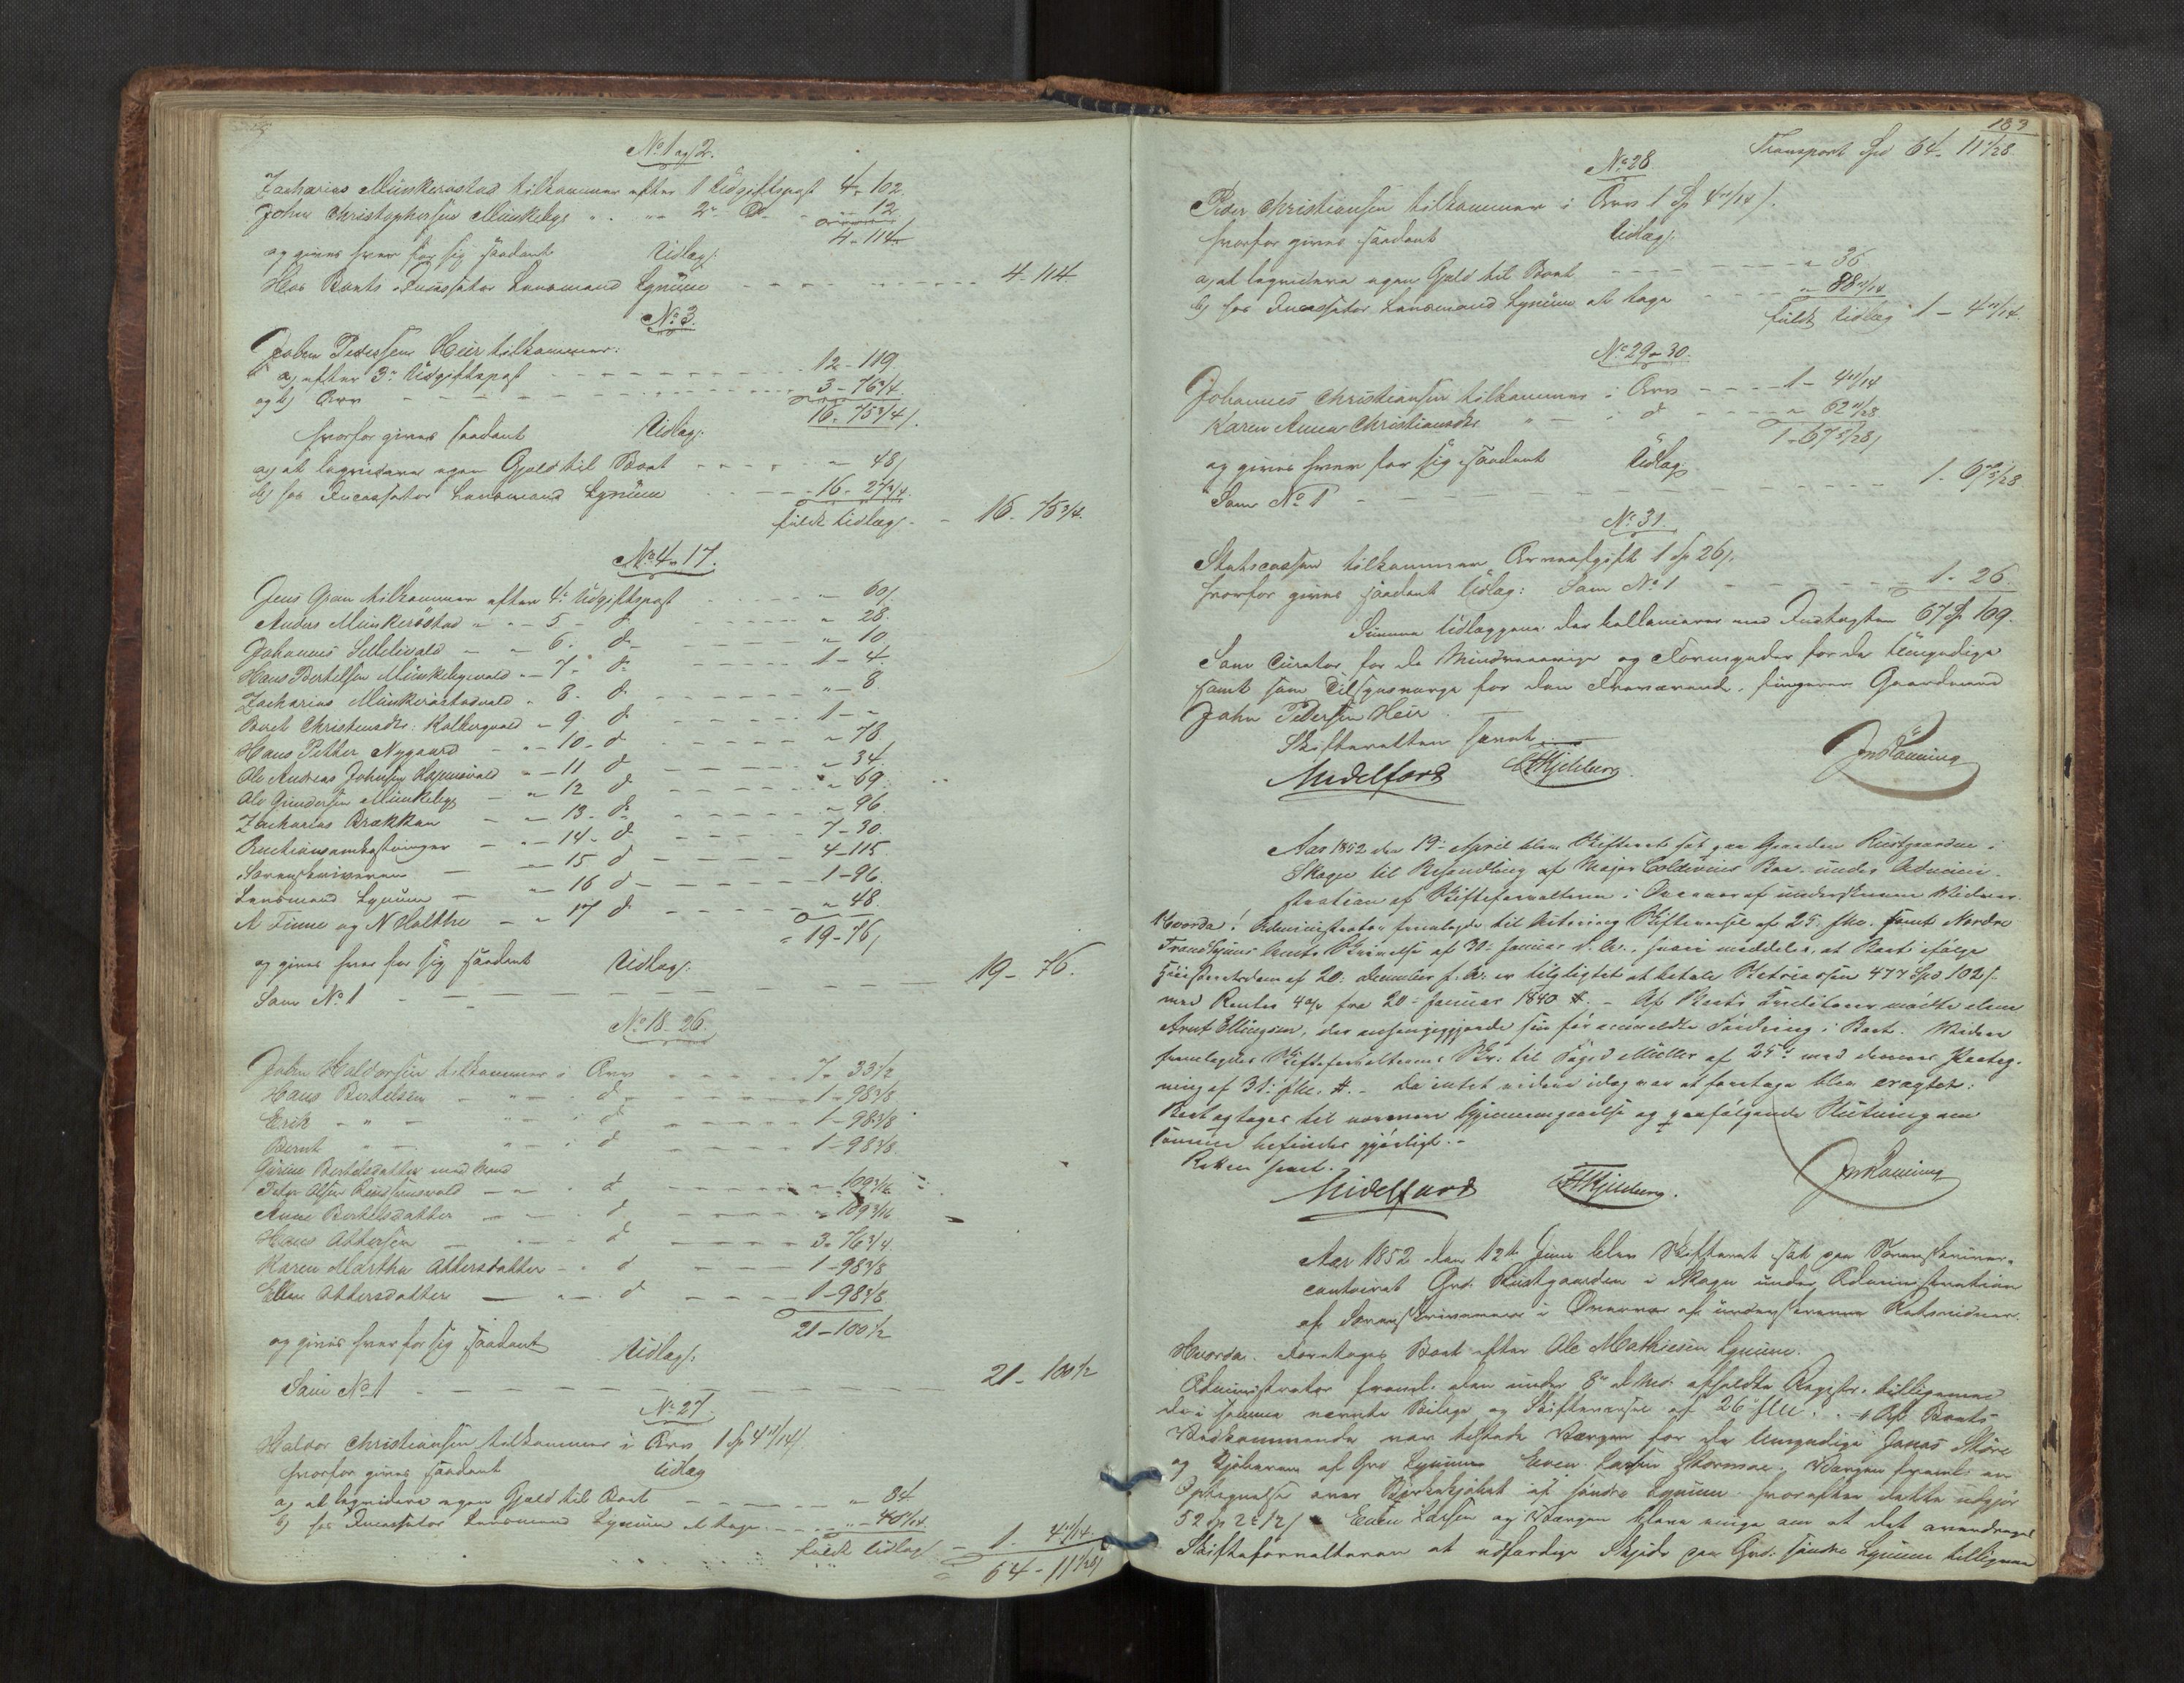 No 1 og 2.
Zacharias Munkerøstad tilkommer efter 1 Udgiftspost 4- 102
John Christophersen Munkebye " " 2 d " 12
4-114
og gives hver for sig saadant Udlæg:
Hos Boets Incassator Lensmand Lynum 4-114.
No 3.
John Pedersen Heir tilkommer:
a, efter 3 Udgiftspost 12-119
og b) Arv 3-76 3/4
16-75 3/4
hvorfor gives saadant Udlæg:
a, at liqvidere egen Gjæld til Boet " 48
b, hos Incassator Lensmand Lynum 16-27 3/4
fuldt Udlæg 16-75 3/4.
No 4-17.
Jens Gran tilkommer efter 4 Udgiftspost " 60
Anders Munkerøstad " 5 d " 28.
Johannes 6 d " 10
Hans Bertelsen Munkebyevald 7 d 1-4
Zacharias Munkerøstadvald 8 d " 8
Beret Christensdtr. 9 d 1-"
Hans Petter Nygaard 10 d " 78
Ole Andreas Johnsen 11 d " 34.
Ole Gundersen Munkebye 12 d " 69
Zacharias Brækkan 13 d " 96
Auctionsomkostninger 14 d 7-30.
Sorenskriveren 15 d 4-115
Lensmand Lynum 16 d 1-96.
A Finne og N Holthe 17 d " 48.
19-76
og gives hver for sig saadant Udlæg:
Som No 1 19-76.
No 18-26.
John Haldorsen tilkommer i Arv 7-33 1/2
Hans Bertelsen " d 1-98 3/8
Erik " " d 1-98 3/8
Bernt " " d 1-98 3/8
Gurine Bertelsdatter med Mand
Peter Olsen d " 109 3/16
Anne Bertelsdatter d " 109 3/16
Hans Ottersen d 3-76 3/4
Karen Martha Ottersdatter d 1-98 3/8
Ellen Ottersdatter d 1-98 3/8
21-100 1/2
og gives hver for sig saadant Udlæg:
Som No 1 21-100 1/2
No 27
Haldor Christiansen tilkommer i Arv 1 Sp 4 11/14
hvorfor gives saadant Udlæg
a, at liqvidere egen Gjæld til Boet " 84
b, hos Incassator Lensmand Lynum at tage " 40 11/14
fuldt Udlæg 1-4 11/14.
64-11 1/28
183
Transport Spd 64-11 1/28
No 28
Peder Christiansen tilkommer i Arv 1 Sp 4 11/14
hvorfor gives saadant Udlæg:
a, at liqvidere egen Gjæld til Boet " 36
b, hos Incassator Lensmand Lynum at tage " 88 11/14
fuldt Udlæg 1-4 11/14.
No 29-30.
Johannes Christiansen tilkommer i Arv 1-4 11/14
Karen Anna Christiansdtr. " d " 62 11/28
1-67 5/28
og gives hver for sig saadant Udlæg:
Som No 1 1-67 5/28
No 31.
Statscassen tilkommer Arveafgift 1 Sp 26.
hvorfor gives saadant Udlæg: Som No 1 1-26.
Summa Udlæggene der ballancerer med Indtægten 67 Sp 109.
Som Curator for de Mindreaarige og Formynder for de Umyndige
samt som Tilsynsværge for den Fraværende, fungerer Gaardmand
John Pedersen Heir.
Skifteretten hævet.
Midelfart Hjelberg.
Aar 1852 den 19 April blev Skifteret sat paa Gaarden Rustgaarden i
Skogn til Behandling af Major Coldevins Boe under Admini-
stration af Skifteforvalteren i Overvær af underskrevne Vidner.
Hvorda! Administrator fremlagde til Actering Skifte af 25 samt Nordre
Trondhjems Amts Skrivelse af 30 Januar d. A., hvori meddeles, at Boet ifølge
Høiesteretsdom af 20 December f. A. er tilpligtet at betale 477 Spd 102
med Renter 4 fra 20 Januar 1840 #. - Af Boets Creditorer mødte alene
Arnt Ellingsen, der sin før anmeldte Fordring i Boet. Videre
fremlagdes Skifteforvalterens Skr. til Foged Müller af 25 med dennes Paateg-
ning af 31 #. - Da intet videre idag var at foretage blev eragtet:
Boet optages til nærmere Gjennemgaaelse og paafølgende Slutning om
samme befindes gjørligt. -
Retten hævet.
Midelfart Hjelberg.
Aar 1852 den 12te Juni blev Skifteret sat paa Sorenskriver-
contoiret Grd. Rustgaarden i Skogn under Administration
af Sorenskriveren i Overvær af underskrevne Retsvidner.
Hvorda. Foretages Boet efter Ole Mathiesen Lynum.
Administrator freml. den under 8 d. Md. afholdte Registr. tilligemed
de i samme nævnte Bilage og Skifte af 26 . . Af Boets
Vedkommende var tilstede Værgen for de Umyndige Jonas Støre
og Kjøberen af Grd Lynum Even Larsen . Værgen freml. en
Optegnelse over af søndre Lynum hvorefter dette udgjør
52 Sp 2 12 Even Larsen og Værgen blev enige om at det overdrages
Skifteforvalteren at udfærdige Skjøde paa Grd. søndre Lynum tilligemed